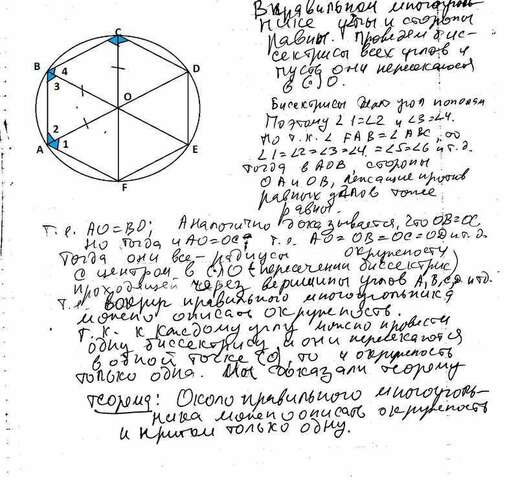 В правильном многоуголь-
нике углы и стороны
равны. Проведем бис-
сектрисы всех углов и
пусть они пересекаются
в (·) О.
C
B
4
3
D
O
2
A
1
E
F
Биссектрисы делят угол пополам
Поэтому ∠1=∠2 и ∠3=∠4.
Но т.к. ∠FAB=∠ABC, то
∠1=∠2=∠3=∠4=∠5=∠6 и т.д.
Тогда в AOB, стороны
OA и OB, лежащие против
равных углов тоже
равны.
т.е. AO=BO; Аналогично доказывается, что OB=OC
Но тогда и AO=OC; т.е. AO=OB=OC=OD и т.д.
Тогда они все - радиусы окружности
с центром в (·) O (пересечении биссектрис)
проходящей через вершины углов A, B, C и т.д.
Т.е. вокруг правильного многоугольника
можно описать окружность.
Т.к. к каждому углу можно провести
одну биссектрису и они пересекаются
в одной точке (O), то и окружность
только одна. Мы доказали теорему
Теорема: Около правильного многоуголь-
ника можно описать окружность
и притом только одну.